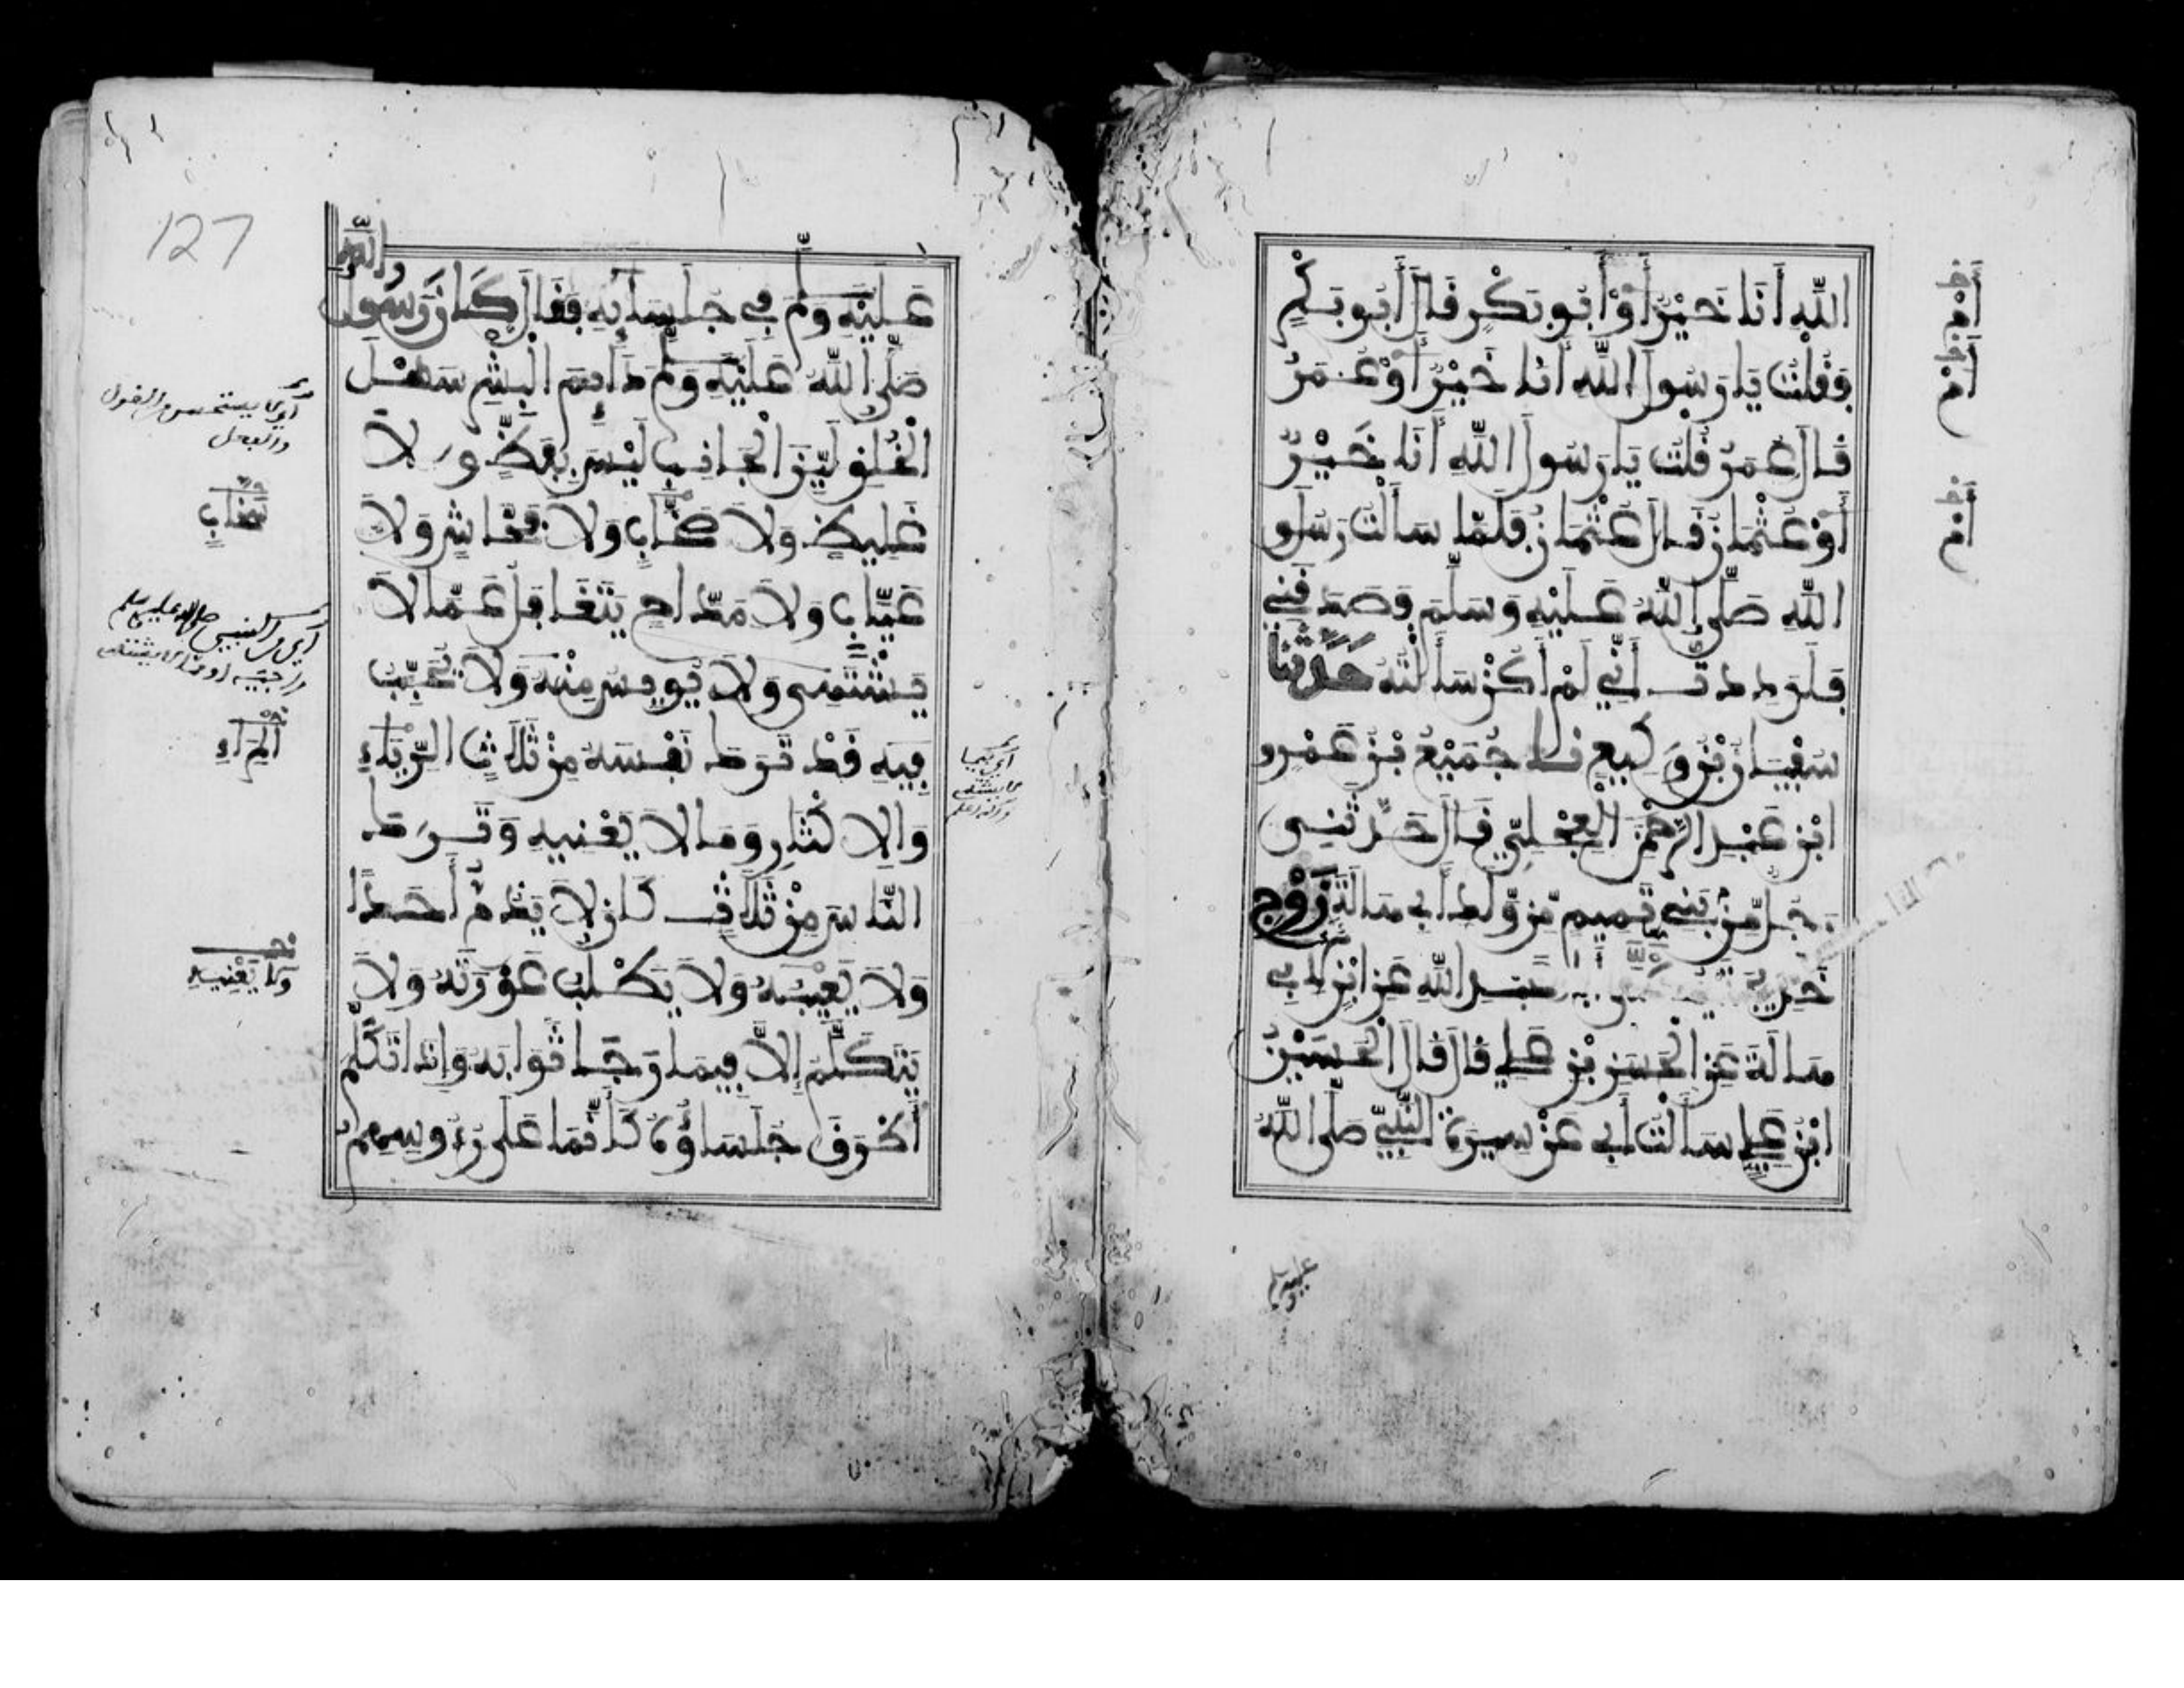 اللَّهِ أَنَا خَيْرٌ أَوْ أَبُو بَكْرٍ قَالَ أَبُو بَكْرٍ
فَقُلْتُ يَا رَسُولَ اللَّهِ أَنَا خَيْرٌ أَوْ عُمَرُ
قَالَ عُمَرُ قُلْتُ يَا رَسُولَ اللَّهِ أَنَا خَيْرٌ
أَوْ عُثْمَانُ قَالَ عُثْمَانُ فَلَمَّا سَأَلْتُ رَسُولَ
اللَّهِ صَلَّى اللَّهُ عَلَيْهِ وَسَلَّمَ فَصَدَقَنِي
فَلَوَدِدتُّ أَنِّي لَمْ أَكُنْ سَأَلْتُهُ حَدَّثَنَا
سُفْيَانُ بْنُ وَكِيعٍ نا جُمَيْعُ بْنُ عُمَرَ
ابْنِ عَبْدِ الرَّحْمَنِ الْعِجْلِيُّ قَالَ حَدَّثَنِي
رَجُلٌ مِّنْ بَنِي تَمِيمٍ مِّنْ وَّلَدِ أَبِي هَالَةَ زَوْجِ
خَدِيجَةَ عَبْدِ اللَّهِ عَنِ ابْنٍ لِأَبِي
هَالَةَ عَنِ الْحَسَنِ بْنِ عَلِيٍّ قَالَ قَالَ الْحُسَيْنُ
ابْنُ عَلِيٍّ سَأَلْتُ أَبِي عَنْ سِيرَةِ النَّبِيِّ صَلَّى اللَّهُ
عليه وسلم
127
عَلَيْهِ وَسَلَّمَ فِي جُلَسَائِهِ فَقَالَ كَانَ رَسُولُ اللَّهِ
صَلَّى اللَّهُ عَلَيْهِ وَسَلَّمَ دَائِمَ الْبِشْرِ سَهْلَ
الْخُلُقِ لَيِّنَ الْجَانِبِ لَيْسَ بِفَظٍّ وَلَا
غَلِيظٍ وَلَا صَخَّابٍ وَلَا فَحَّاشٍ وَلَا
عَيَّابٍ وَلَا مَدَّاحٍ يَتَغَافَلُ عَمَّا لَا
يَشْتَهِي وَلَا يُويِسُ مِنْهُ وَلَا يُجِيبُ
فِيهِ قَدْ تَرَكَ نَفْسَهُ مِنْ ثَلَاثٍ الرِّيَاءِ
وَالْإِكْثَارِ وَمَا لَا يَعْنِيهِ وَتَرَكَ
النَّاسَ مِنْ ثَلَاثٍ كَانَ لَا يَذُمُّ أَحَدًا
وَلَا يَعِيبُهُ وَلَا يَطْلُبُ عَوْرَتَهُ وَلَا
يَتَكَلَّمُ إِلَّا فِيمَا رَجَا ثَوَابَهُ وَإِذَا تَكَلَّمَ
أَطْرَقَ جُلَسَاؤُهُ كَأَنَّمَا عَلَى رُءُوسِهِمُ
والفعل
سَخَّابٍ
الْمِرَاءِ
وَلَا يَعْنِيهِ